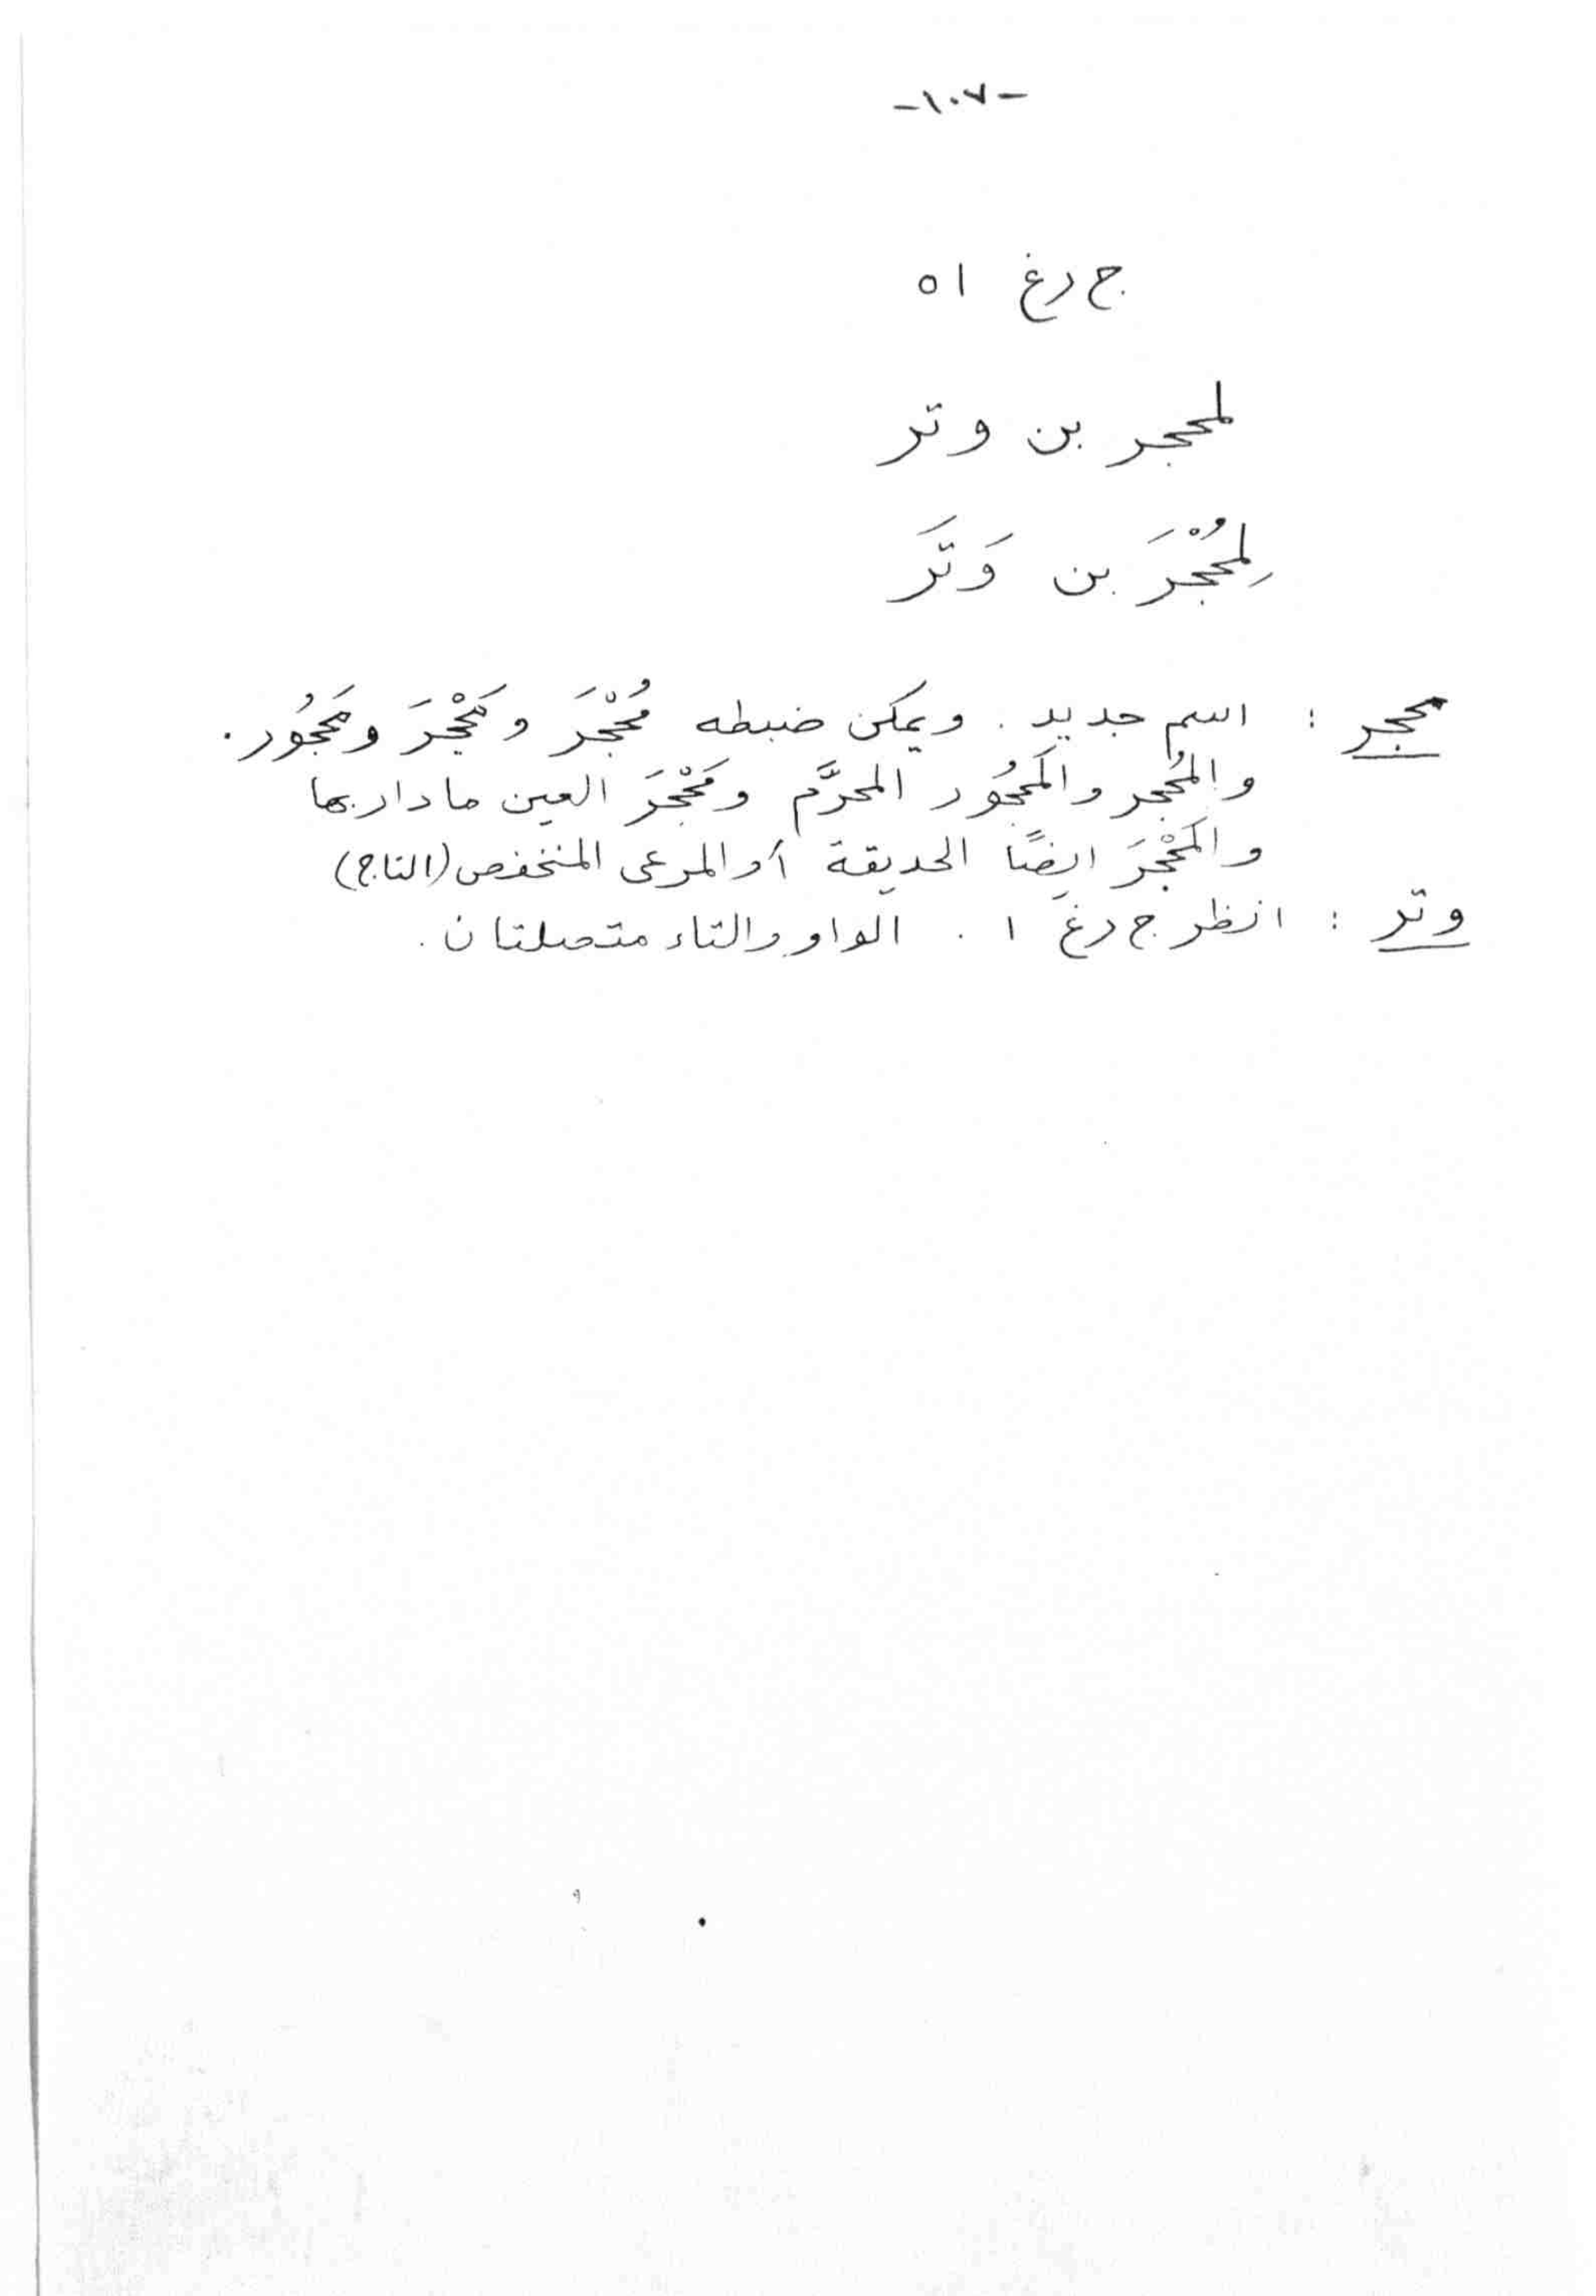 -١٠٧-
ج رغ ٥١
لمحجر بن وتر
لِمُحْجَر بن وَتَر
محجر : اسم جديد . ويمكن ضبطه مُحْجَر ومَحْجَر ومحجُور .
والمُحجر والمَحجُور المحرَّم ومَحْجَر العين ما دار بها
والمَحْجَر ايضًا الحديقة أو المرعى المنخفض (التاج)
وتر : انظر ج رغ ١ . الواو والتاء متصلتان .